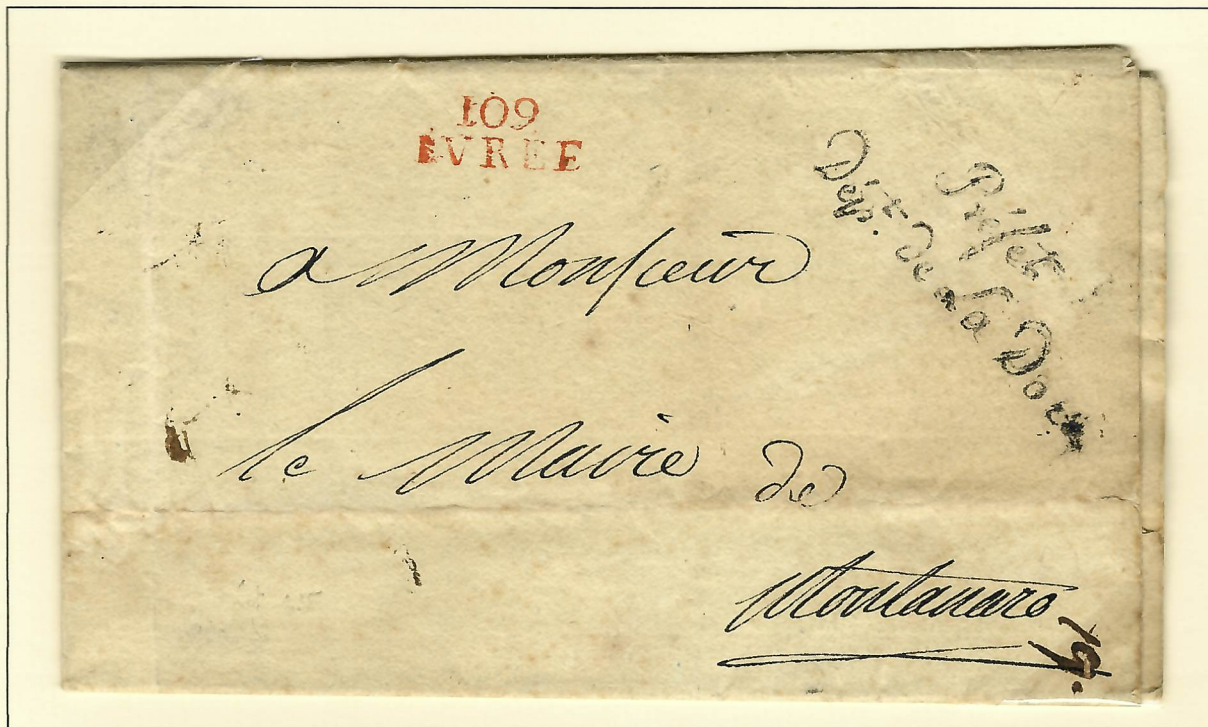 109
IVREE
Préfet
Dépt. de la Doire
a Monsieur
le Maire de
Montanaro
19.